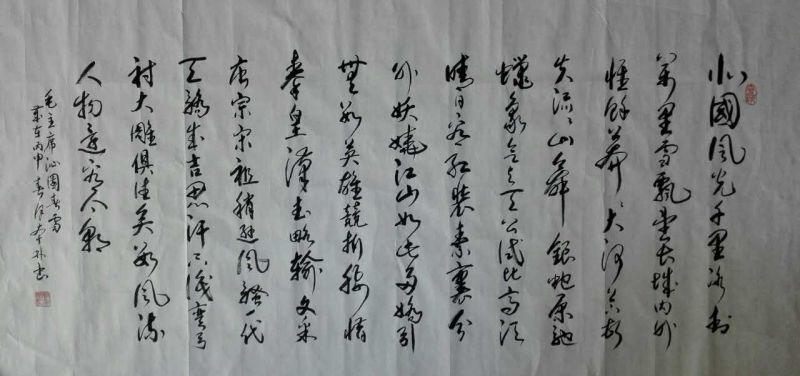 北國風光千里冰封
萬里雪飄望長城內外
惟餘莽〻大河上下頓
失滔〻山舞銀蛇原馳
蠟象欲與天公試比高須
晴日看紅裝素裹分
外妖嬈江山如此多嬌引
無數英雄競折腰惜
秦皇漢武略輸文采
唐宗宋祖稍遜風騷一代
天驕成吉思汗只識彎弓
射大雕俱往矣數風流
人物還看今朝
毛主席沁園春雪
歲在丙申春月書